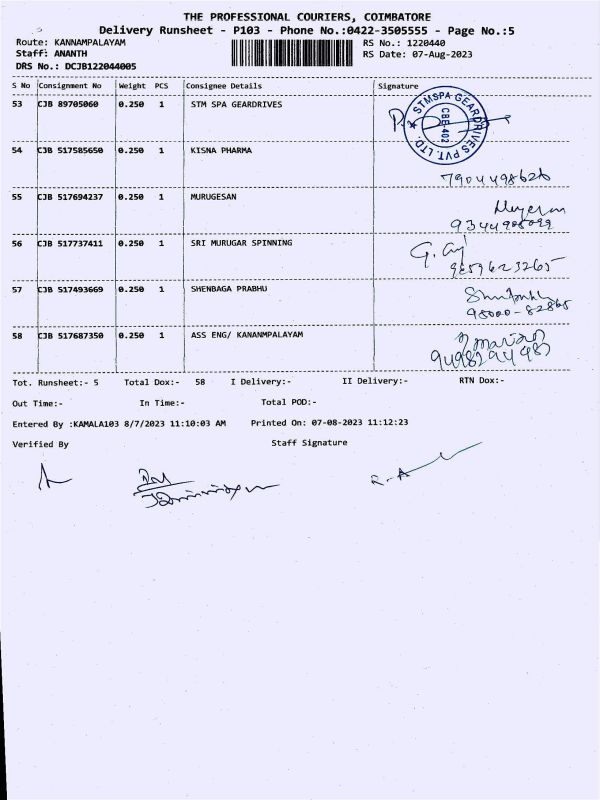 THE PROFESSIONAL COURIERS, COIMBATORE
Delivery Runsheet - P103 - Phone No.:0422-3505555 - Page No.:5
Route: KANNAMPALAYAM RS No.: 1220440
Staff: ANANTH RS Date: 07-Aug-2023
DRS No.: DCJB122044005
S No Consignment No Weight PCS Consignee Details Signature
53 CJB 89705060 0.250 1 STM SPA GEARDRIVES
STMSPA GEARDRIVES PVT. LTD. ★
CBE-402
54 CJB 517585650 0.250 1 KISNA PHARMA
7904498626
55 CJB 517694237 0.250 1 MURUGESAN
56 CJB 517737411 0.250 1 SRI MURUGAR SPINNING
9659623265
57 CJB 517493669 0.250 1 SHENBAGA PRABHU
98000-82865
58 CJB 517687350 0.250 1 ASS ENG/ KANANMPALAYAM
Tot. Runsheet:- 5 Total Dox:- 58 I Delivery:- II Delivery:- RTN Dox:-
Out Time:- In Time:- Total POD:-
Entered By :KAMALA103 8/7/2023 11:10:03 AM Printed On: 07-08-2023 11:12:23
Verified By Staff Signature